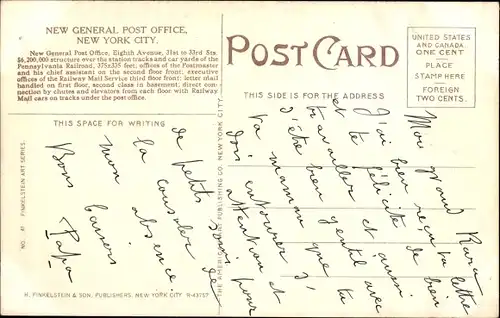 NEW GENERAL POST OFFICE,
NEW YORK CITY.
New General Post Office, Eighth Avenue, 31st to 33rd Sts.
$6,200,000 structure over the station tracks and car yards of the
Pennsylvania Railroad, 375x335 feet; offices of the Postmaster
and his chief assistant on the second floor front; executive
offices of the Railway Mail Service third floor front; letter mail
handled on first floor, second class in basement; direct con-
nection by chutes and elevators from each floor with Railway
Mail cars on tracks under the post office.
POST CARD
UNITED STATES
AND CANADA
ONE CENT
PLACE
STAMP HERE
FOREIGN
TWO CENTS.
THIS SIDE IS FOR THE ADDRESS
THIS SPACE FOR WRITING
Mon grand Rara
J'ai bien reçu ta lettre
et te félicite de bien
travailler et aussi
d'être bien gentil avec
ta maman que tu
dois entourer d'
attention et
de petits soins pour
la consoler de
mon absence.
Bons baisers
Papa
NO. 41 FINKELSTEIN ART SERIES.
THE AMERICAN ART PUBLISHING CO. NEW YORK CITY.
H. FINKELSTEIN & SON, PUBLISHERS, NEW YORK CITY R-43757